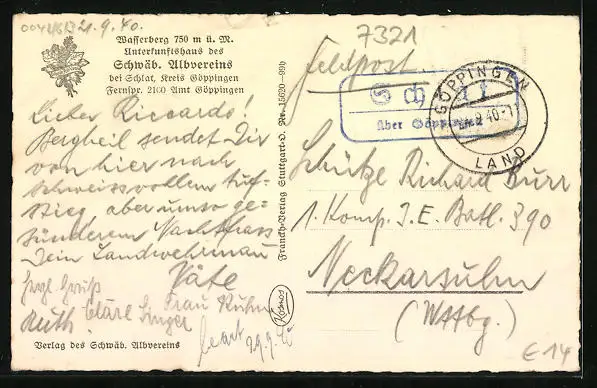 0042613
21.9.40.
Wasserberg 750 m ü. M.
Unterkunftshaus des
Schwäb. Albvereins
bei Schlat, Kreis Göppingen
Fernspr. 2100 Amt Göppingen
Lieber Riccardo!
Bergheil sendet Dir
von hier nach
schweissvollem Auf-
stieg aber umso ge-
sünderem
Dein Landwehrmann
Väte
Herzl. Gruß
Ruth. Clärle Singer
Frau Kuhn
beant. 29.9.40
Verlag des Schwäb. Albvereins
Franckh-Verlag Stuttgart-O. Nr. 15620-99b
Kosmos
7321
Feldpost
über Göppingen
GÖPPINGEN
9.40.-11
LAND
Schütze Richard Burr
1. Komp. J.E. Batl. 390
Neckarsulm
(Wttbg.)
€14